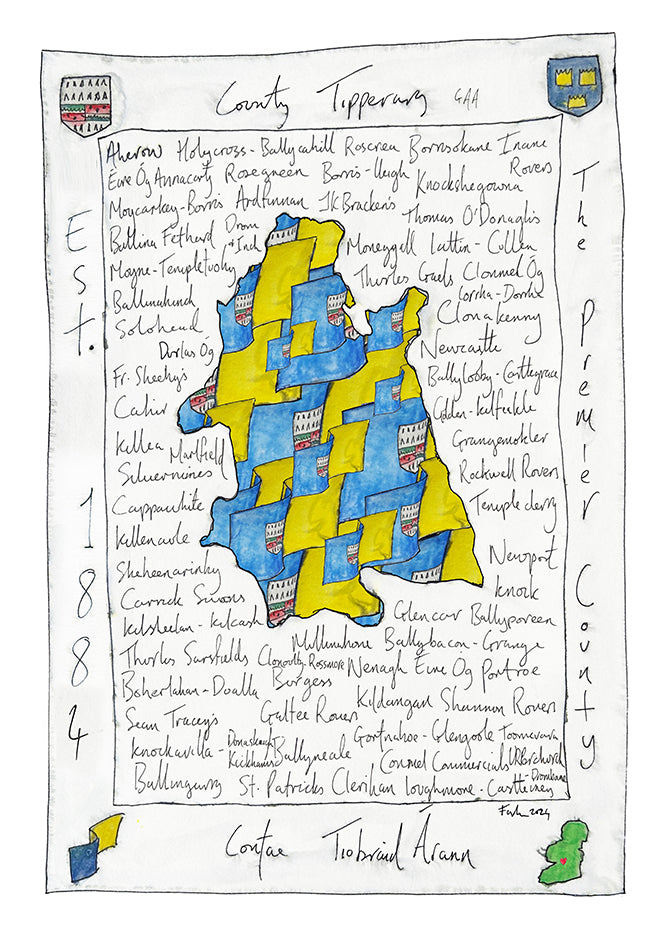 County Tipperary GAA
Aherlow Holycross-Ballycahill Roscrea Borrisokane Inane
Rovers
Éire Óg Annacarty Rosegreen Borris-Ileigh Knockshegowna
Moycarkey-Borris Ardfinnan JK Bracken's
Thomas O'Donaghs
Ballina Fethard Drom
& Inch
Moneygall Lattin-Cullen
Moyne-Templetuohy
Thurles Gaels Clonmel Óg
Ballinahinch
Lorrha-Dorrha
Solohead
Clonakenny
Durlas Óg
Newcastle
Fr. Sheehy's
Ballylooby-Castlegrace
Cahir
Golden-Kilfeakle
Killea Marlfield
Grangemokler
Silvermines
Rockwell Rovers
Cappawhite
Templederry
Killenaule
Newport
Sheheenarinky
Knock
Carrick Swans
Glencar Ballyporeen
Kilsheelan-Kilcash
Mullinahone Ballybacon-Grange
Thurles Sarsfields Clonoulty-Rossmore Nenagh Éire Óg Portroe
Boherlahan-Dualla Burgess
Kildangan Shannon Rovers
Sean Tracey's Galtee Rovers
Gortnahoe-Glengoole Toomevara
Knockavilla-Donaskeigh
Kickhams
Ballyneale
Conmel Commercials
-Drombane
Ballingarry St. Patricks Clerihan Loughmore-Castleiney
2024
Est. 1884
The Premier County
Contae Thiobraid Árann